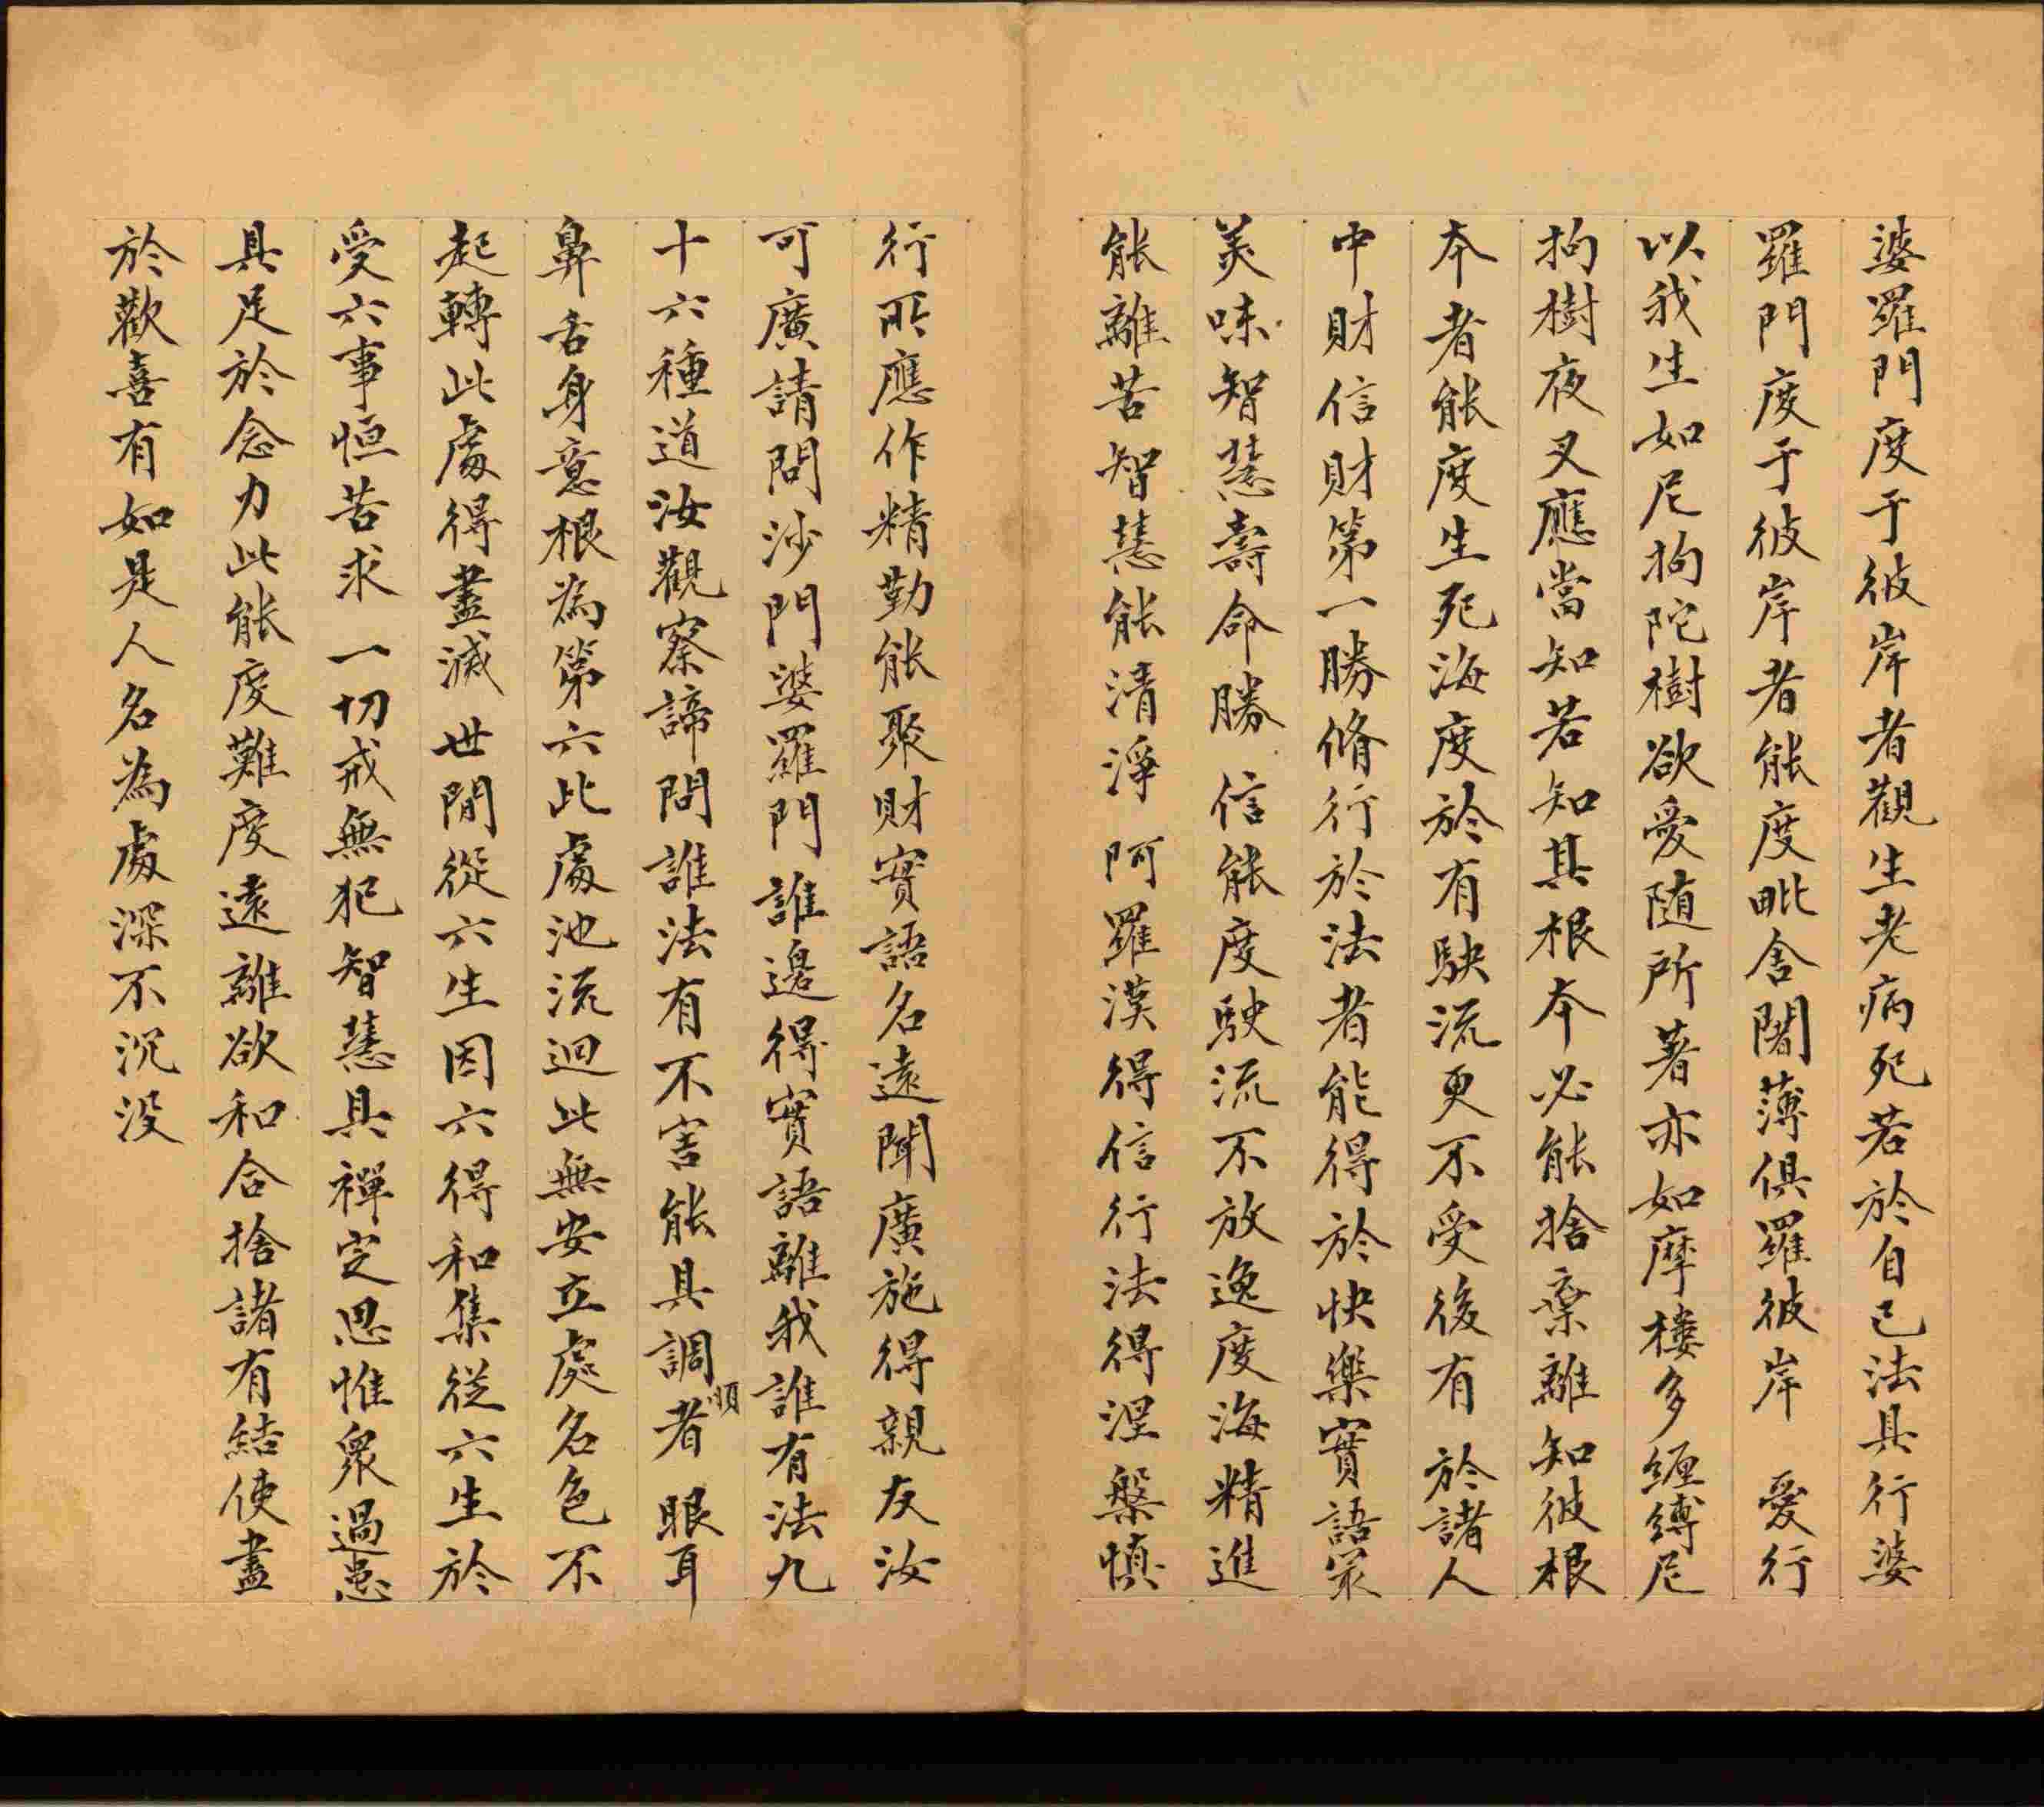 婆羅門度于彼岸者觀生老病死若於自己法具行婆
羅門度于彼岸者能度毗舍闍薄俱羅彼岸　愛行
以我生如尼拘陀樹欲愛隨所著亦如摩樓多纏縛尼
拘樹夜叉應當知若知其根本必能捨棄離知彼根
本者能度生死海度於有駃流更不受後有　於諸人
中財信財第一勝脩行於法者能得於快樂實語冣
美味智慧壽命勝　信能度駛流不放逸度海精進
能離苦智慧能清淨　阿羅漢得信行法得涅槃慎
行所應作精勤能聚財實語名遠聞廣施得親友汝
可廣請問沙門婆羅門誰邊得實語離我誰有法九
十六種道汝觀察諦問誰法有不害能具調順者　眼耳
鼻舌身意根為第六此處池流迴此無安立處名色不
起轉此處得盡滅　世間從六生因六得和集從六生於
受六事恒苦求　一切戒無犯智慧具禪定思惟衆過患
具足於念力此能度難度遠離欲和合捨諸有結使盡
於歡喜有如是人名為處深不沉没